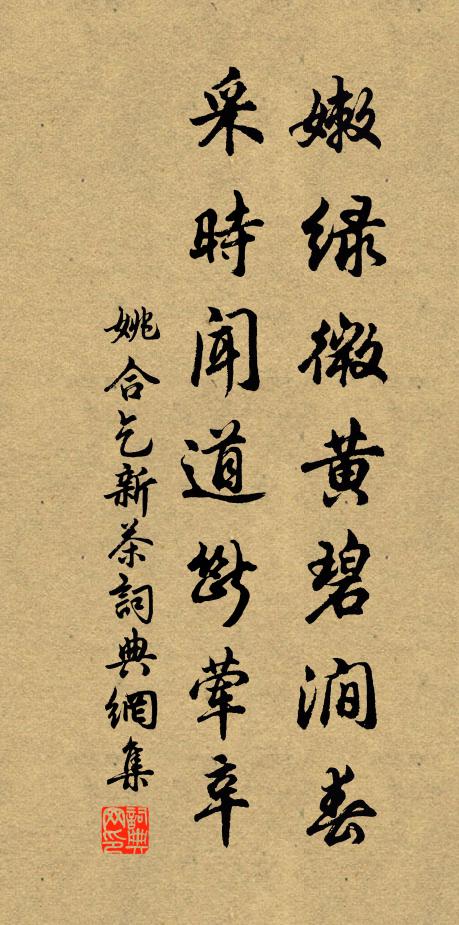 嫩绿微黄碧涧春
采時闻道断荤辛
姚合乞新茶詞典網集
詞典网印